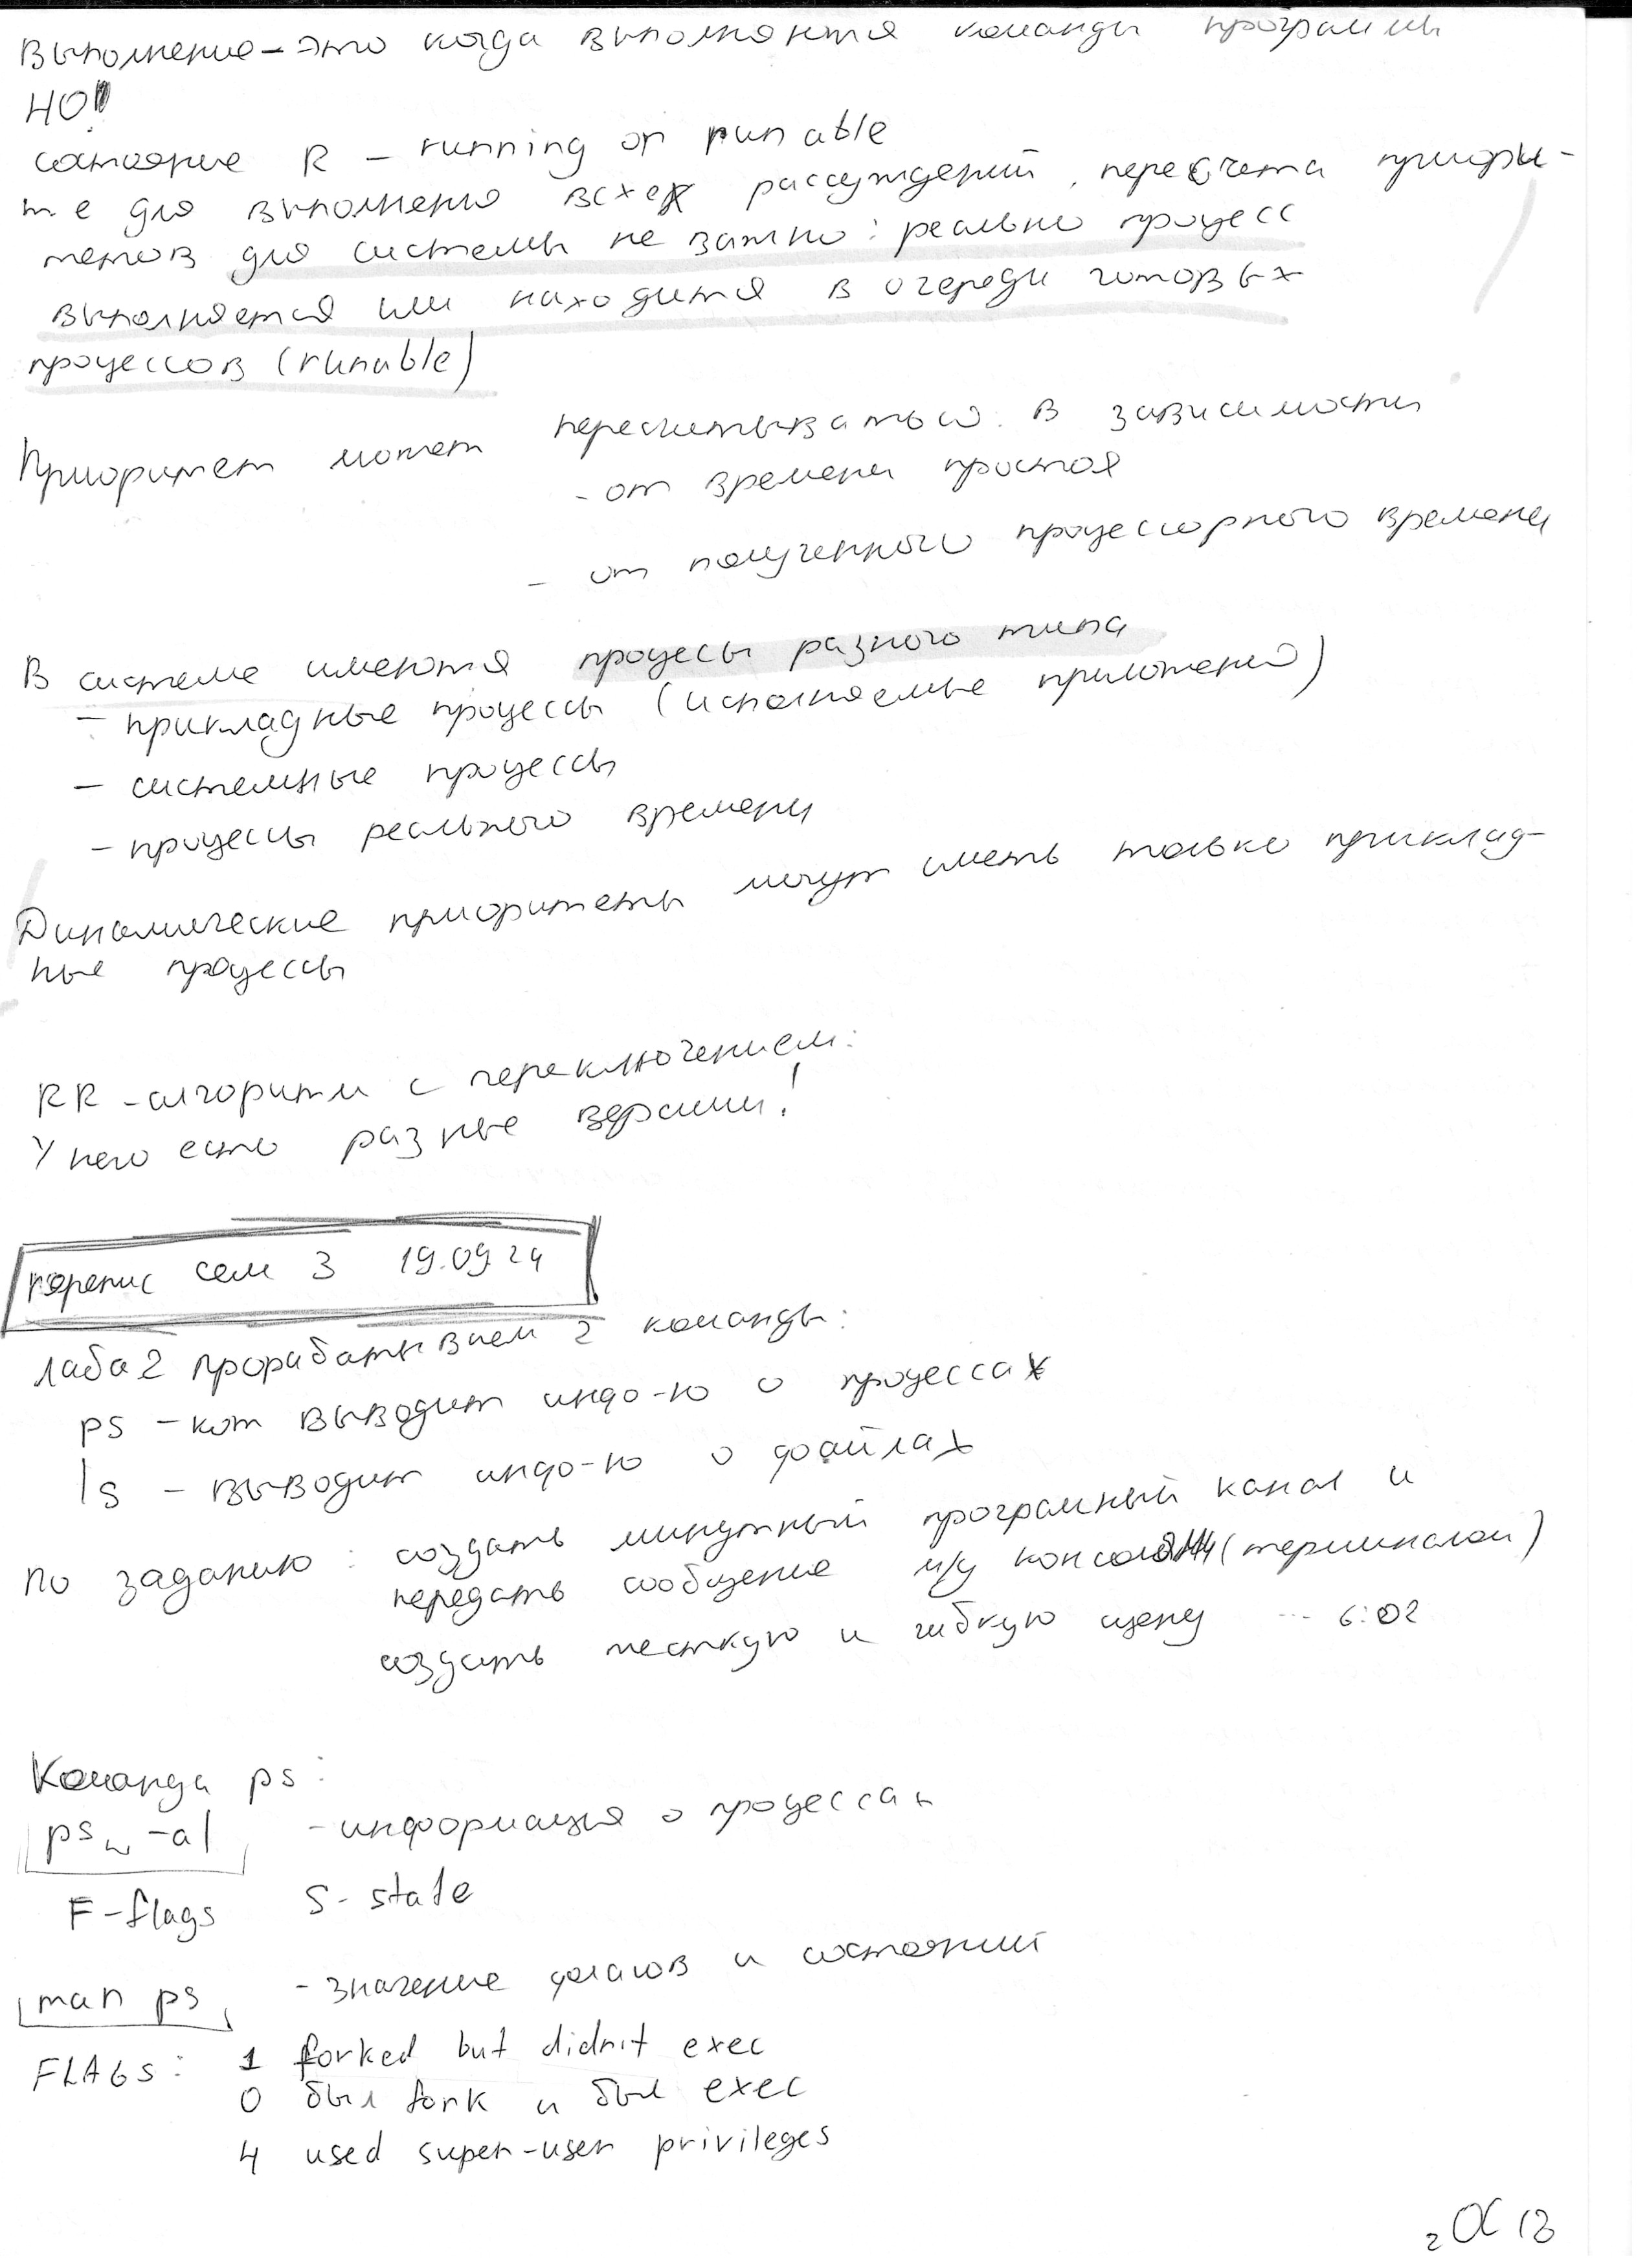 Выполнение – это когда выполняются команды программы
НО!
состояние R – running or runable
т е для выполнения всех рассуждений, пересчета приори-
тетов для системы не важно: реально процесс
выполняется или находится в очереди готовых
процессов (runable)
Приоритет может пересчитываться в зависимости
- от времени простоя
- от полученного процессорного времени
В системе имеются процесы разного типа
– прикладные процессы (исполняемые приложения)
– системные процессы
– процессы реального времени
Динамические приоритеты могут иметь только приклад-
ные процессы
RR – алгоритм с переключением:
У него есть разные версии!
перепис сем 3 19.09.24
Лаба 2 прорабатываем 2 команды:
ps – кот выводит инфо-ю о процессах
ls – выводит инфо-ю о файлах
По заданию: создать именуемый програмный канал и
передать сообщение м/у (терминалом)
создать жесткую и гибкую ... 6:02
Команда ps:
ps -al - информация о процессах
F-flags S-state
man ps - значение флагов и состояний
FLAGS: 1 forked but didn't exec
0 был fork и был exec
4 used super-user privileges
2 ОС 13